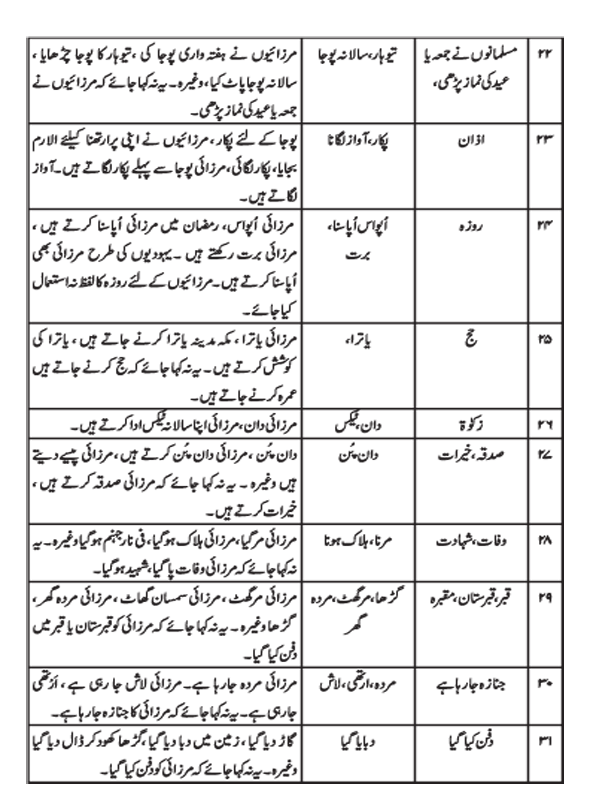 ۲۲ مسلمانوں نے جمعہ یا تیوہار، سالانہ پوجا مرزائیوں نے ہفتہ واری پوجا کی، تیوہار کا پوجا چڑھایا،
عید کی نماز پڑھی، سالانہ پوجا پاٹ کیا، وغیرہ۔ یہ نہ کہا جائے کہ مرزائیوں نے
جمعہ یا عید کی نماز پڑھی۔
۲۳ اذان پکار، آواز لگانا پوجا کے لئے پکار، مرزائیوں نے اپنی پرارتھنا کیلئے الارم
بجایا، پکار لگائی، مرزائی پوجا سے پہلے پکار لگاتے ہیں۔ آواز
لگاتے ہیں۔
۲۴ روزہ اُپواس اُپاسنا، مرزائی اُپواس، رمضان میں مرزائی اُپاسنا کرتے ہیں،
برت مرزائی برت رکھتے ہیں۔ یہودیوں کی طرح مرزائی بھی
اُپاسنا کرتے ہیں۔ مرزائیوں کے لئے روزہ کا لفظ نہ استعمال
کیا جائے۔
۲۵ حج یاترا، مرزائی یاترا، مکہ مدینہ یاترا کرنے جاتے ہیں، یاترا کی
کوشش کرتے ہیں۔ یہ نہ کہا جائے کہ حج کرنے جاتے ہیں
عمرہ کرنے جاتے ہیں۔
۲۶ زکوٰۃ دان، ٹیکس مرزائی دان، مرزائی اپنا سالانہ ٹیکس ادا کرتے ہیں۔
۲۷ صدقہ، خیرات دان پُن دان پُن، مرزائی دان پُن کرتے ہیں، مرزائی پیسے دیتے
ہیں وغیرہ۔ یہ نہ کہا جائے کہ مرزائی صدقہ کرتے ہیں،
خیرات کرتے ہیں۔
۲۸ وفات، شہادت مرنا، ہلاک ہونا مرزائی مر گیا، مرزائی ہلاک ہو گیا، فی نار جہنم ہو گیا وغیرہ۔ یہ
نہ کہا جائے کہ مرزائی وفات پا گیا، شہید ہو گیا۔
۲۹ قبر، قبرستان، مقبرہ گڑھا، مرگھٹ، مردہ مرزائی مرگھٹ، مرزائی سمسان گھاٹ، مرزائی مردہ گھر،
گھر گڑھا وغیرہ۔ یہ نہ کہا جائے کہ مرزائی کو قبرستان یا قبر میں
دفن کیا گیا۔
۳۰ جنازہ جا رہا ہے مردہ، ارتھی، لاش مرزائی مردہ جا رہا ہے۔ مرزائی لاش جا رہی ہے، ارتھی
جا رہی ہے۔ یہ نہ کہا جائے کہ مرزائی کا جنازہ جا رہا ہے۔
۳۱ دفن کیا گیا دبایا گیا گاڑ دیا گیا، زمین میں دبا دیا گیا، گڑھا کھود کر ڈال دیا گیا
وغیرہ۔ یہ نہ کہا جائے کہ مرزائی کو دفن کیا گیا۔